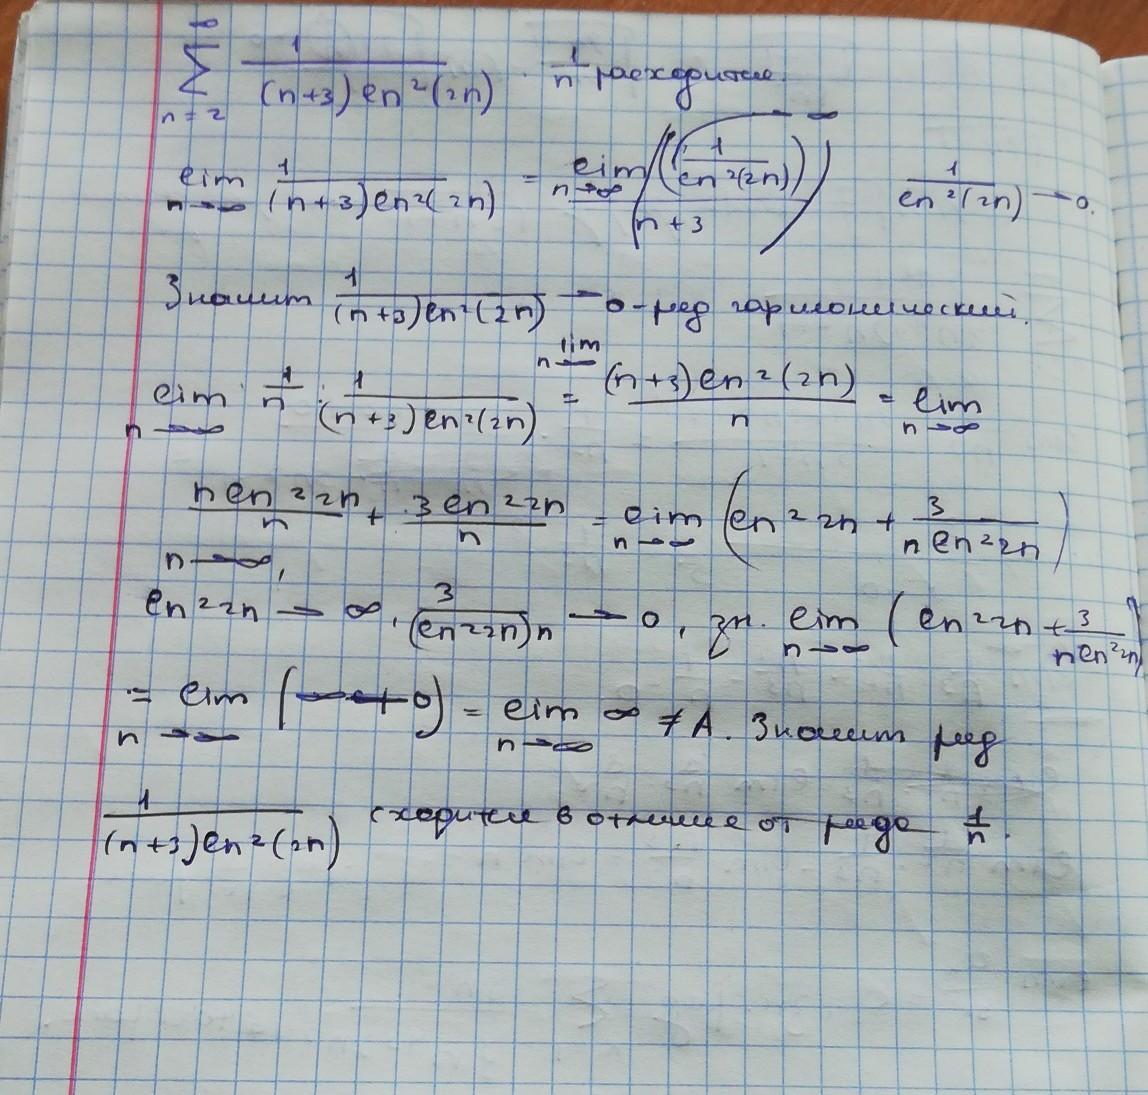 ∞ ∑ n=2 1/((n+3) ln²(2n)) . 1/n расходится.
lim n→∞ 1/((n+3) ln²(2n)) = lim n→∞ ((1/(ln²(2n)))/(n+3)) 1/(ln²(2n)) → 0.
Значит 1/((n+3) ln²(2n)) → 0 - ряд гармонический.
lim n→∞ 1/n : 1/((n+3) ln²(2n)) = lim n→∞ ((n+3) ln²(2n))/n = lim n→∞
(n ln²2n)/n + (3 ln²2n)/n = lim n→∞ (ln²2n + 3/(n ln²2n))
n→∞,
ln²2n → ∞, 3/((ln²2n)n) → 0, зн. lim n→∞ (ln²2n + 3/(n ln²2n))
= lim n→∞ (∞+0) = lim n→∞ ∞ ≠ A. Значит ряд
1/((n+3) ln²(2n)) сходится в отличие от ряда 1/n.